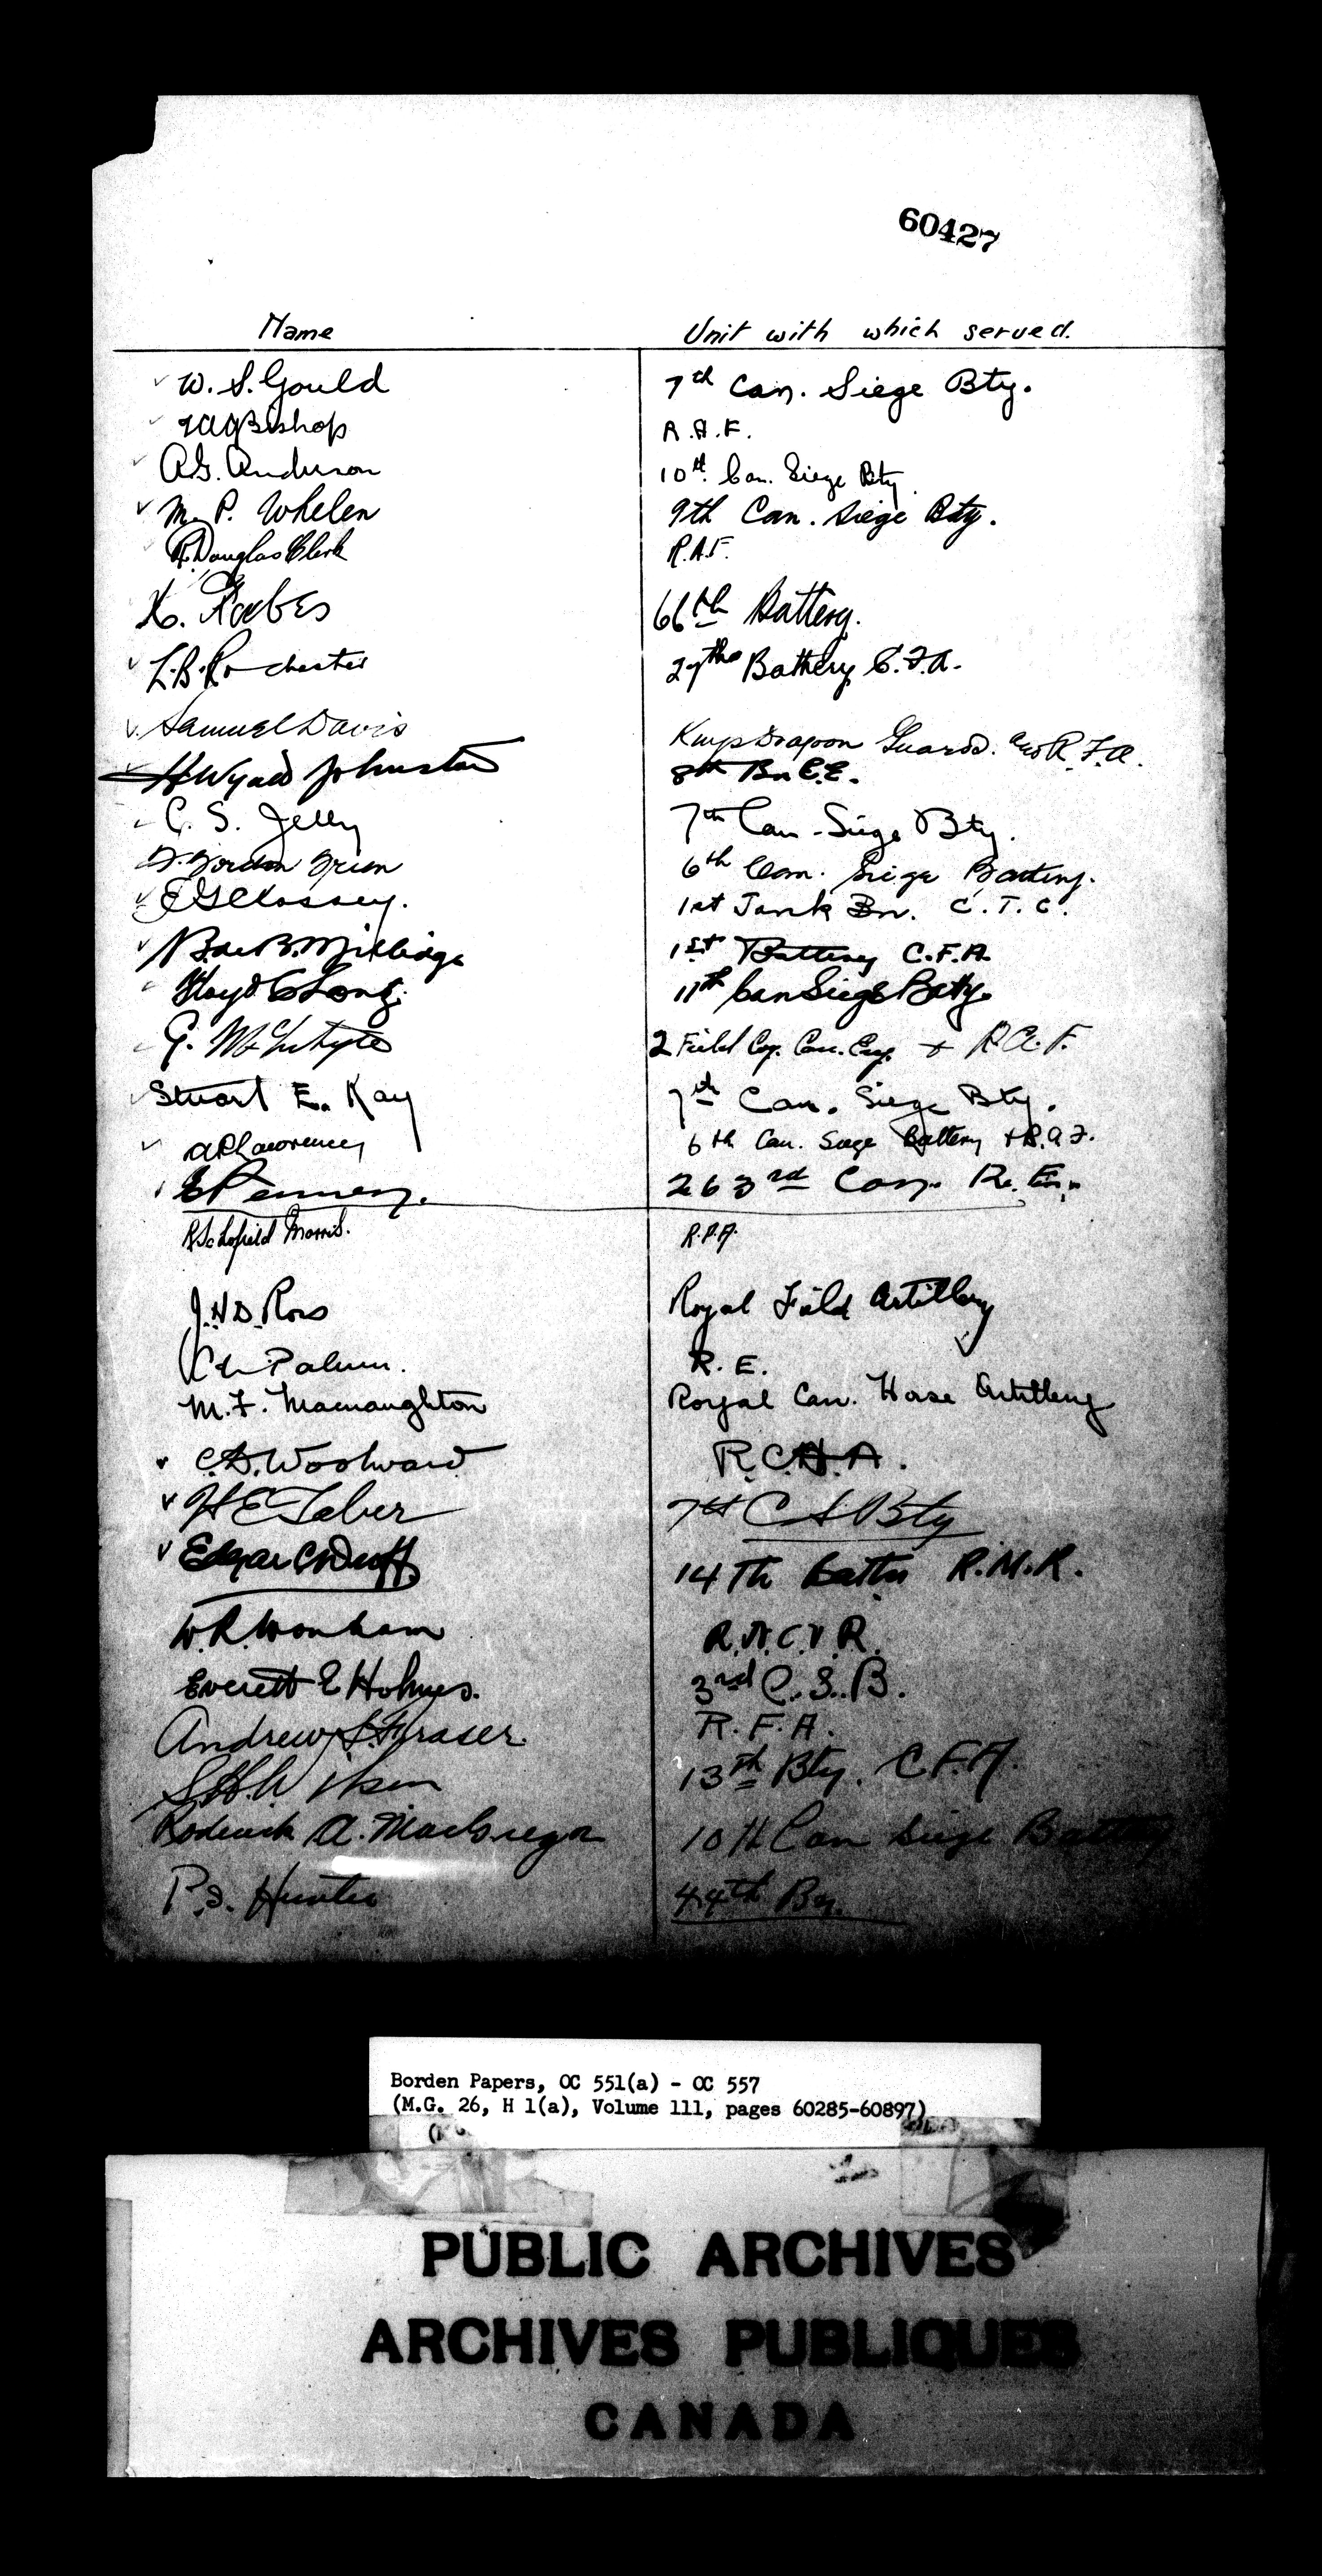 60427
Name Unit with which served.
W. S. Gould 7th Can. Siege Bty.
Bishop R.A.F.
A.G. Anderson 10th Can. Siege Bty.
M. P. Whelen 9th Can. Siege Bty.
R. Douglas Clerk R.A.F.
K. 66th Battery.
L.B. Rochester 27th Battery C.F.A.
Samuel Davis Kings Dragoon Guards. and R.F.A.
H Wyatt Johnston 8th Bn C.E.
C. S. Jelly 7th Can. Siege Bty.
Gordon 6th Can. Siege Battery.
1st Tank Bn. C.T.C.
1st Battery C.F.A.
Lloyd C Long. 11th Can Siege Baty.
G. McIntyre 2 Field Coy. Can. Eng. + R.A.F.
Stuart E. Kay 7th Can. Siege Bty.
Lawrence 6th Can. Siege Battery + R.A.F.
E Penney. 263rd Coy. R. En.
R Schofield Morris. R.F.A.
J.H.D. Ross Royal Field Artillery
Palmer. R. E.
M. F. Macnaughton Royal Can. Horse Artillery
C.D. Woolward R.C.H.A.
H E Taber 7th C S Bty
Edgar C Duff 14th Battn R.M.R.
W.R. Wonham R.N.C.V.R.
Everett E Holmes. 3rd C.S.B.
Andrew S. Fraser. R.F.A.
S.H. Wilson 13th Bty. C.F.A.
Roderick A. MacGregor 10th Can Siege Battery
P.S. Hunter 44th Bn.
Borden Papers, OC 551(a) - OC 557
(M.G. 26, H 1(a), Volume 111, pages 60285-60897)
PUBLIC ARCHIVES
ARCHIVES PUBLIQUES
CANADA